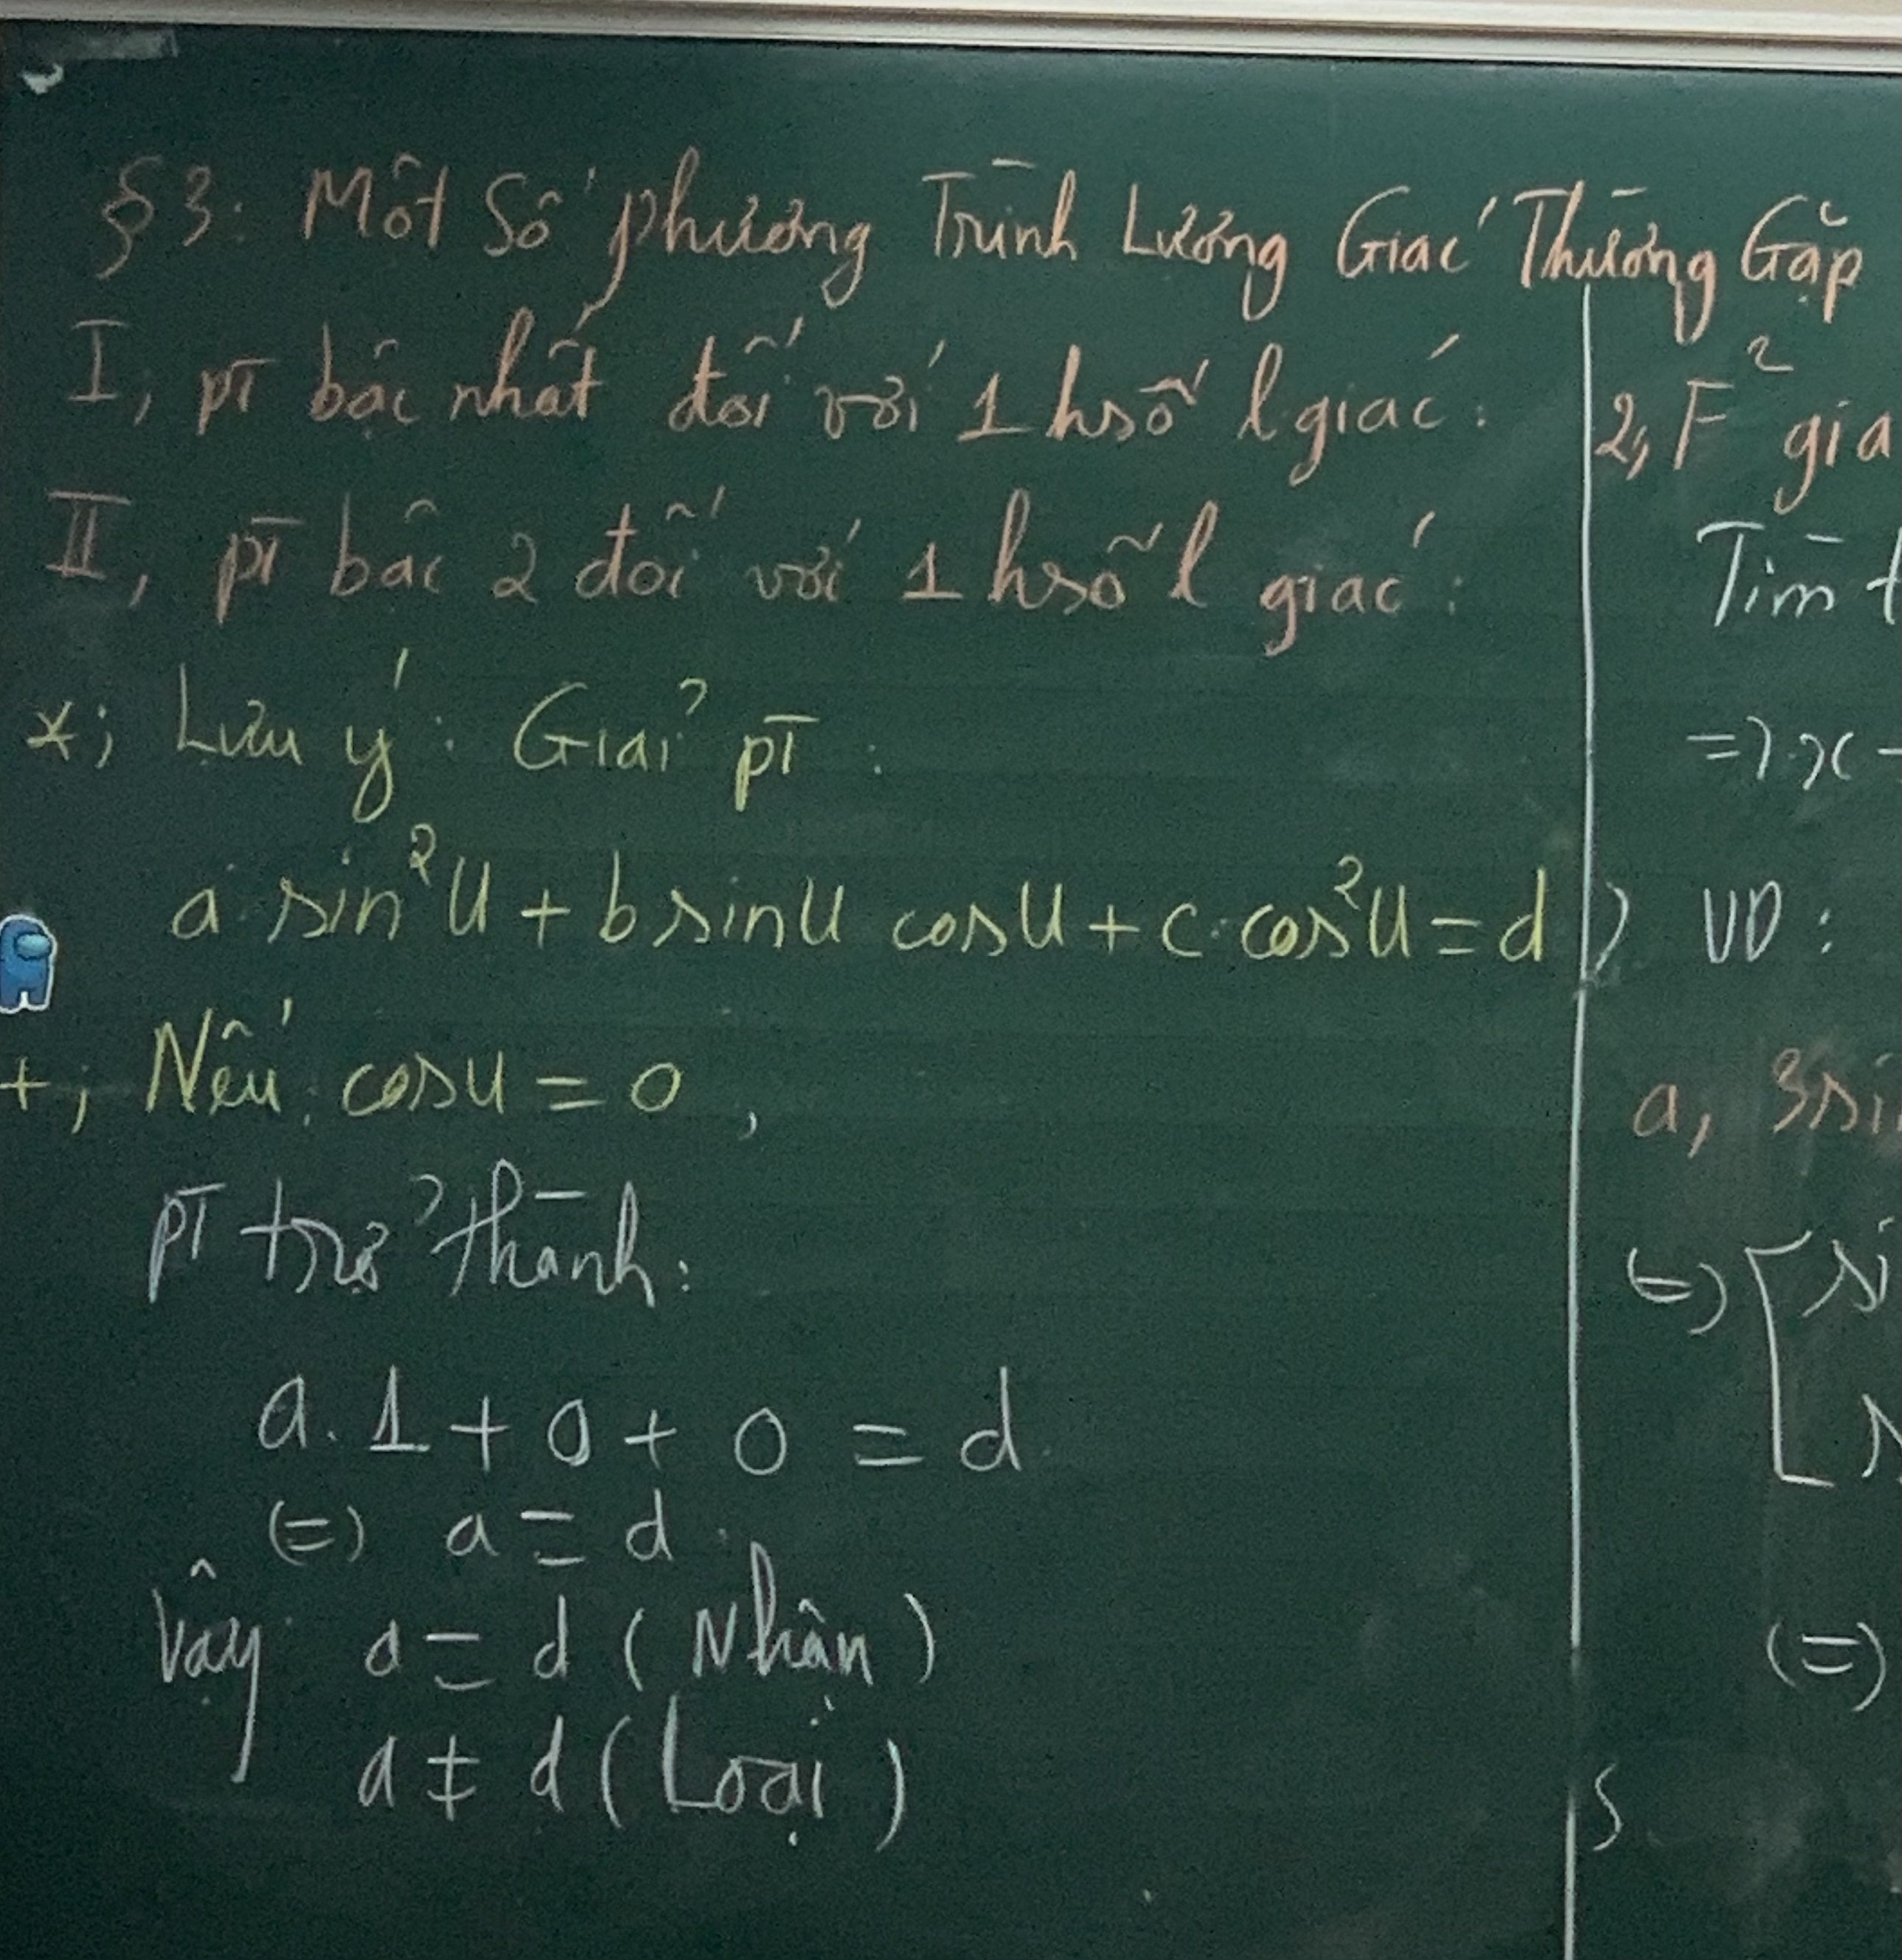 §3: Một Số phương Trình Lượng Giác Thường Gặp
I, pT bậc nhất đối với 1 hsố lgiác:
II, pT bậc 2 đối với 1 hsố l giác:
*; Lưu ý: Giải pT:
a sin²u + b sinu cosu + c.cos²u = d
+, Nếu cosu = 0,
pT trở thành:
a.1 + 0 + 0 = d
(=) a = d.
Vậy a = d (Nhận)
a ≠ d (Loại)
2, F² gia
Tìm t
=) x -
) VD:
a, 3si
(=) [ si
s
(=)
S